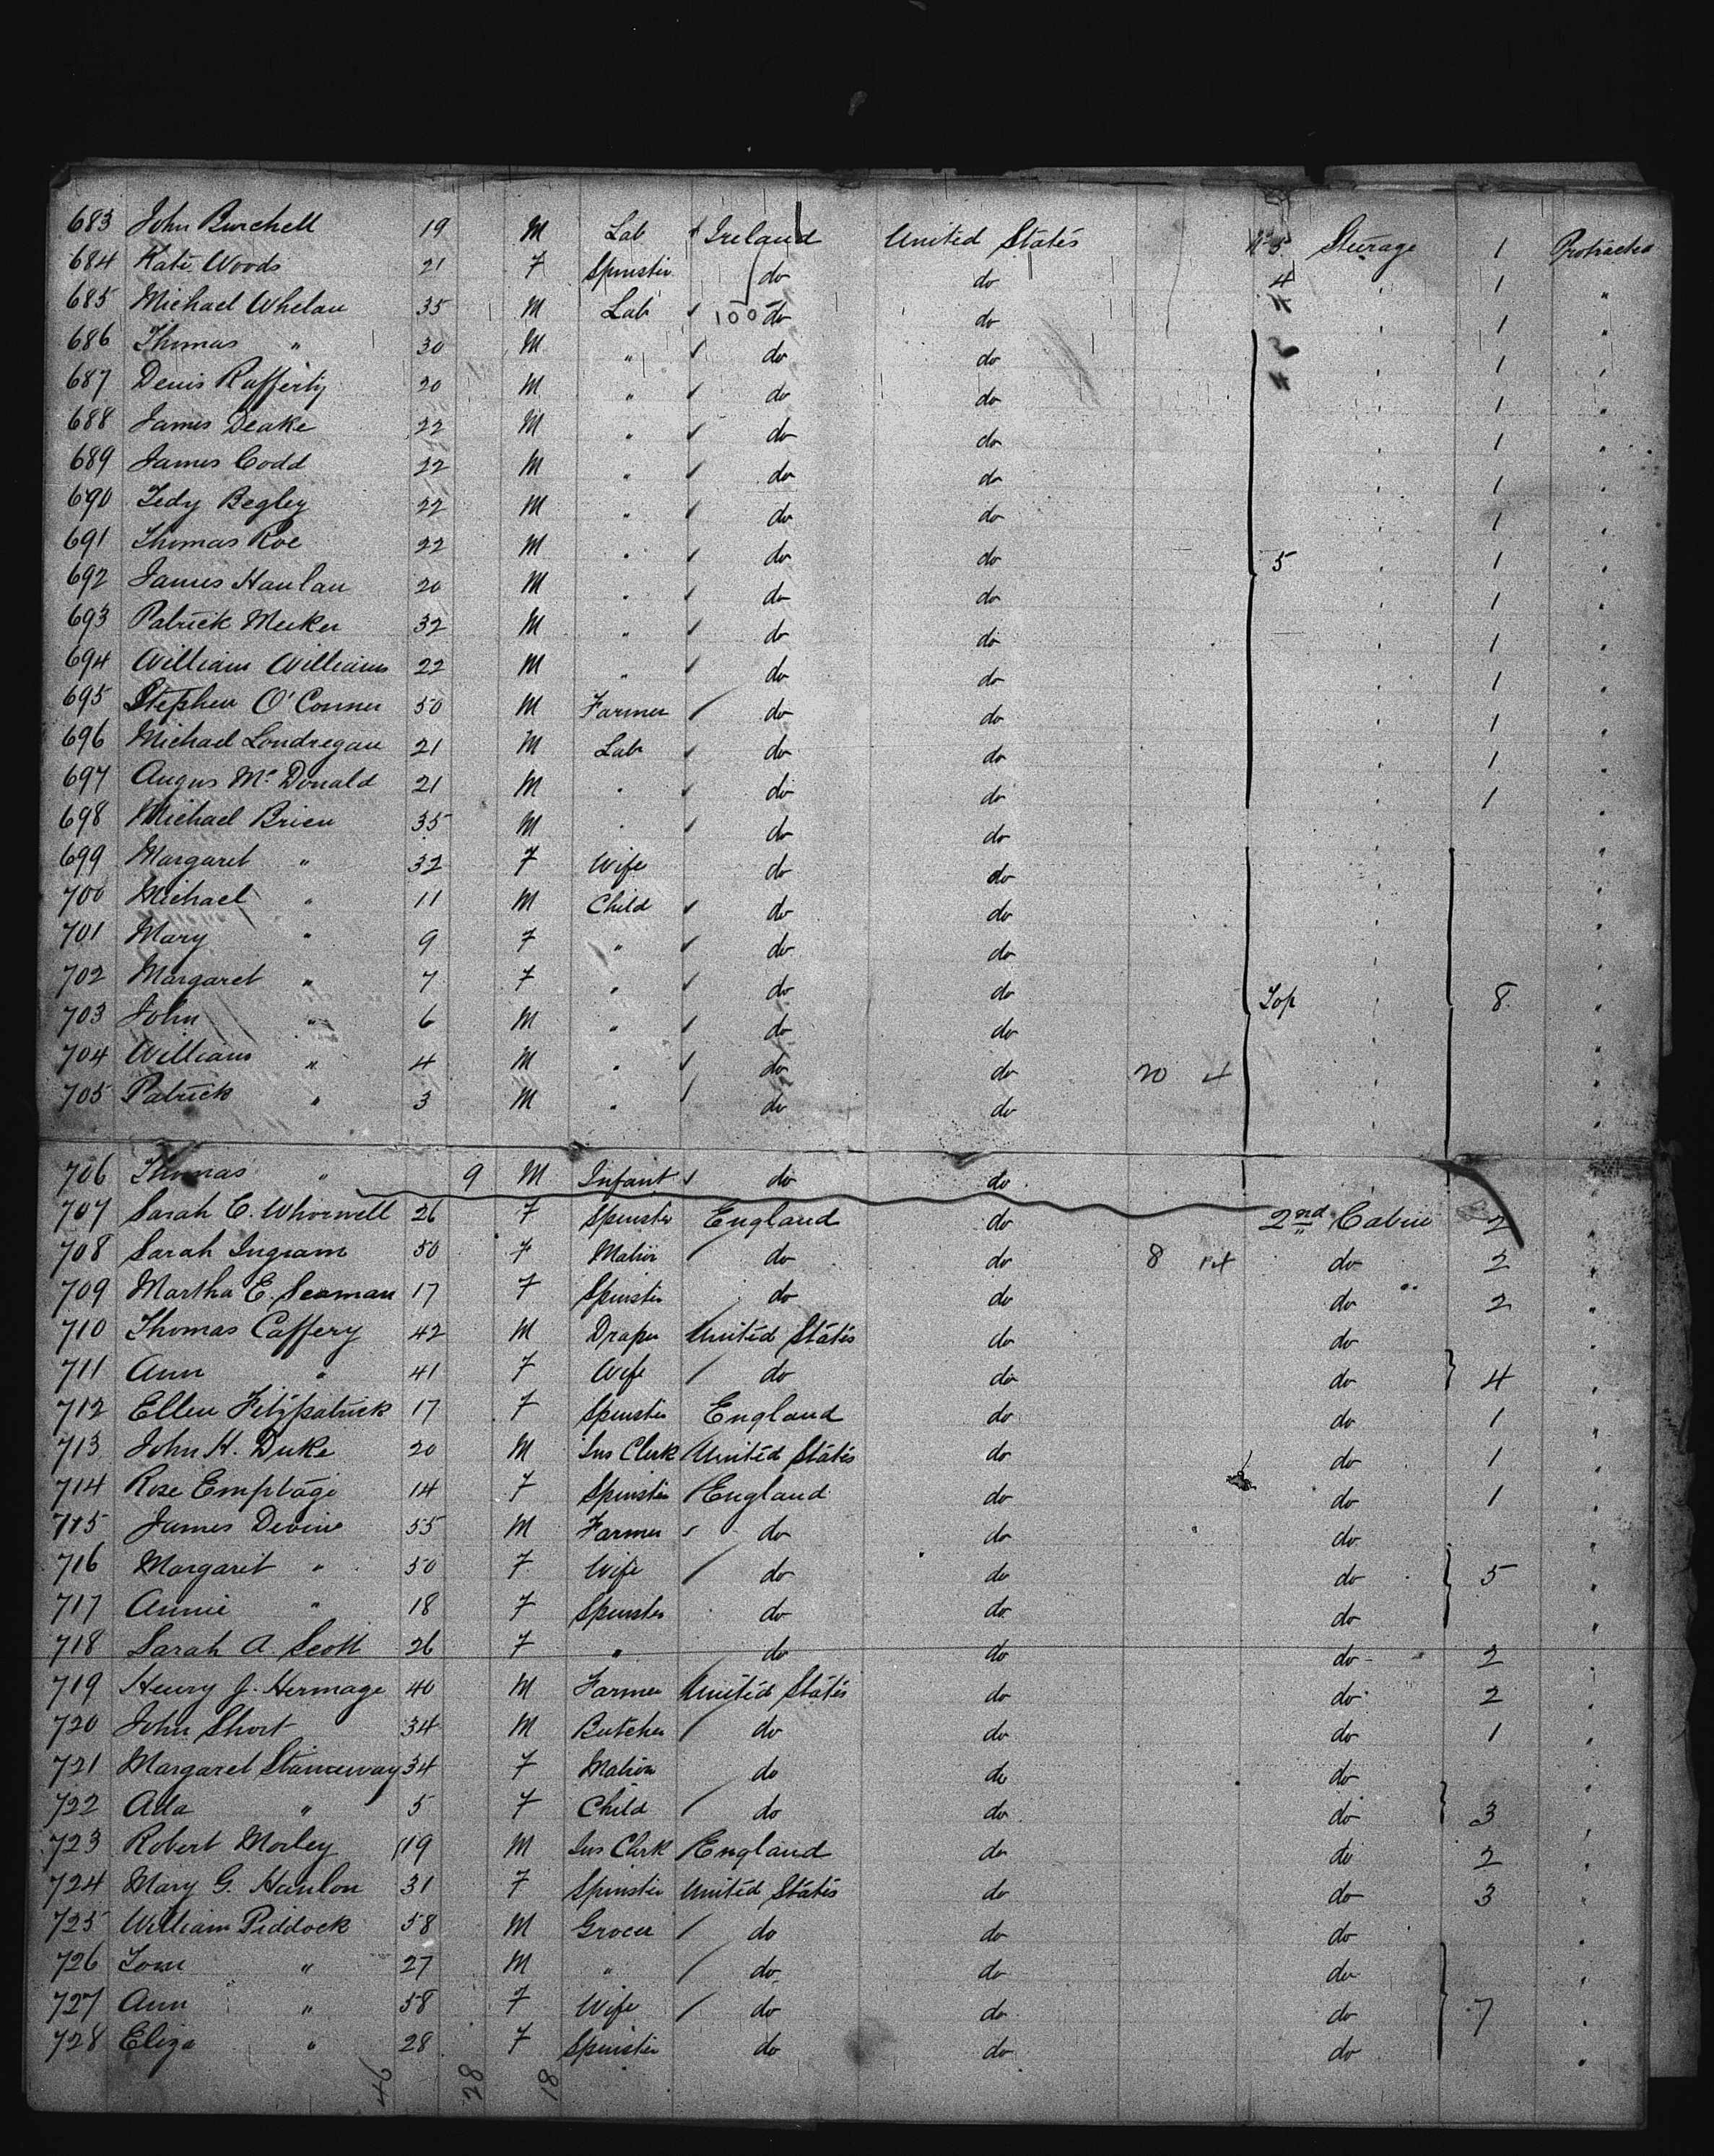 683 John Burchell 19 M Lab Ireland United States No 5 Steerage 1 Protracted
684 Kate Woods 21 F Spinster do do 4 " 1 "
685 Michael Whelan 35 M Lab 100 do do " 1 "
686 Thomas " 30 M " do do " 1 "
687 Denis Rafferty 20 M " do do " 1 "
688 James Deake 22 M " do do " 1 "
689 James Codd 22 M " do do " 1 "
690 Tedy Begley 22 M " do do " 1 "
691 Thomas Roe 22 M " do do 5 " 1 "
692 James Hanlan 20 M " do do " 1 "
693 Patrick Meeker 32 M " do do " 1 "
694 William Williams 22 M " do do " 1 "
695 Stephen O'Conner 50 M Farmer do do " 1 "
696 Michael Londregan 21 M Lab do do " 1 "
697 Angus Mc Donald 21 M " do do " 1 "
698 Michael Brien 35 M " do do " "
699 Margaret " 32 F Wife do do " "
700 Michael " 11 M Child do do " "
701 Mary " 9 F " do do " "
702 Margaret " 7 F " do do Top " 8 "
703 John " 6 M " do do " "
704 William " 4 M " do do 20 4 " "
705 Patrick " 3 M " do do " "
706 Thomas " 9 M Infant do do " "
707 Sarah C. Whornell 26 F Spinster England do 2nd Cabin 2 "
708 Sarah Ingram 50 F Matron do do 8 14 do 2 "
709 Martha E. Seaman 17 F Spinster do do do 2 "
710 Thomas Caffery 42 M Draper United States do do "
711 Ann " 41 F Wife do do do 4 "
712 Ellen Fitzpatrick 17 F Spinster England do do 1 "
713 John H. Duke 20 M Ins Clerk United States do do 1 "
714 Rose Emptage 14 F Spinster England do do 1 "
715 James Devine 55 M Farmer do do do "
716 Margaret " 50 F Wife do do do 5 "
717 Annie " 18 F Spinster do do do "
718 Sarah A. Scott 26 F " do do do 2 "
719 Henry J. Hermage 40 M Farmer United States do do 2 "
720 John Short 34 M Butcher do do do 1 "
721 Margaret Stanceway 34 F Matron do do do "
722 Ada " 5 F Child do do do 3 "
723 Robert Morley 19 M Ins Clerk England do do 2 "
724 Mary G. Hanlon 31 F Spinster United States do do 3 "
725 William Piddock 58 M Grocer do do do "
726 Tom " 27 M " do do do "
727 Ann " 58 F Wife do do do 7 "
728 Eliza " 28 F Spinster do do do "
46 28 18